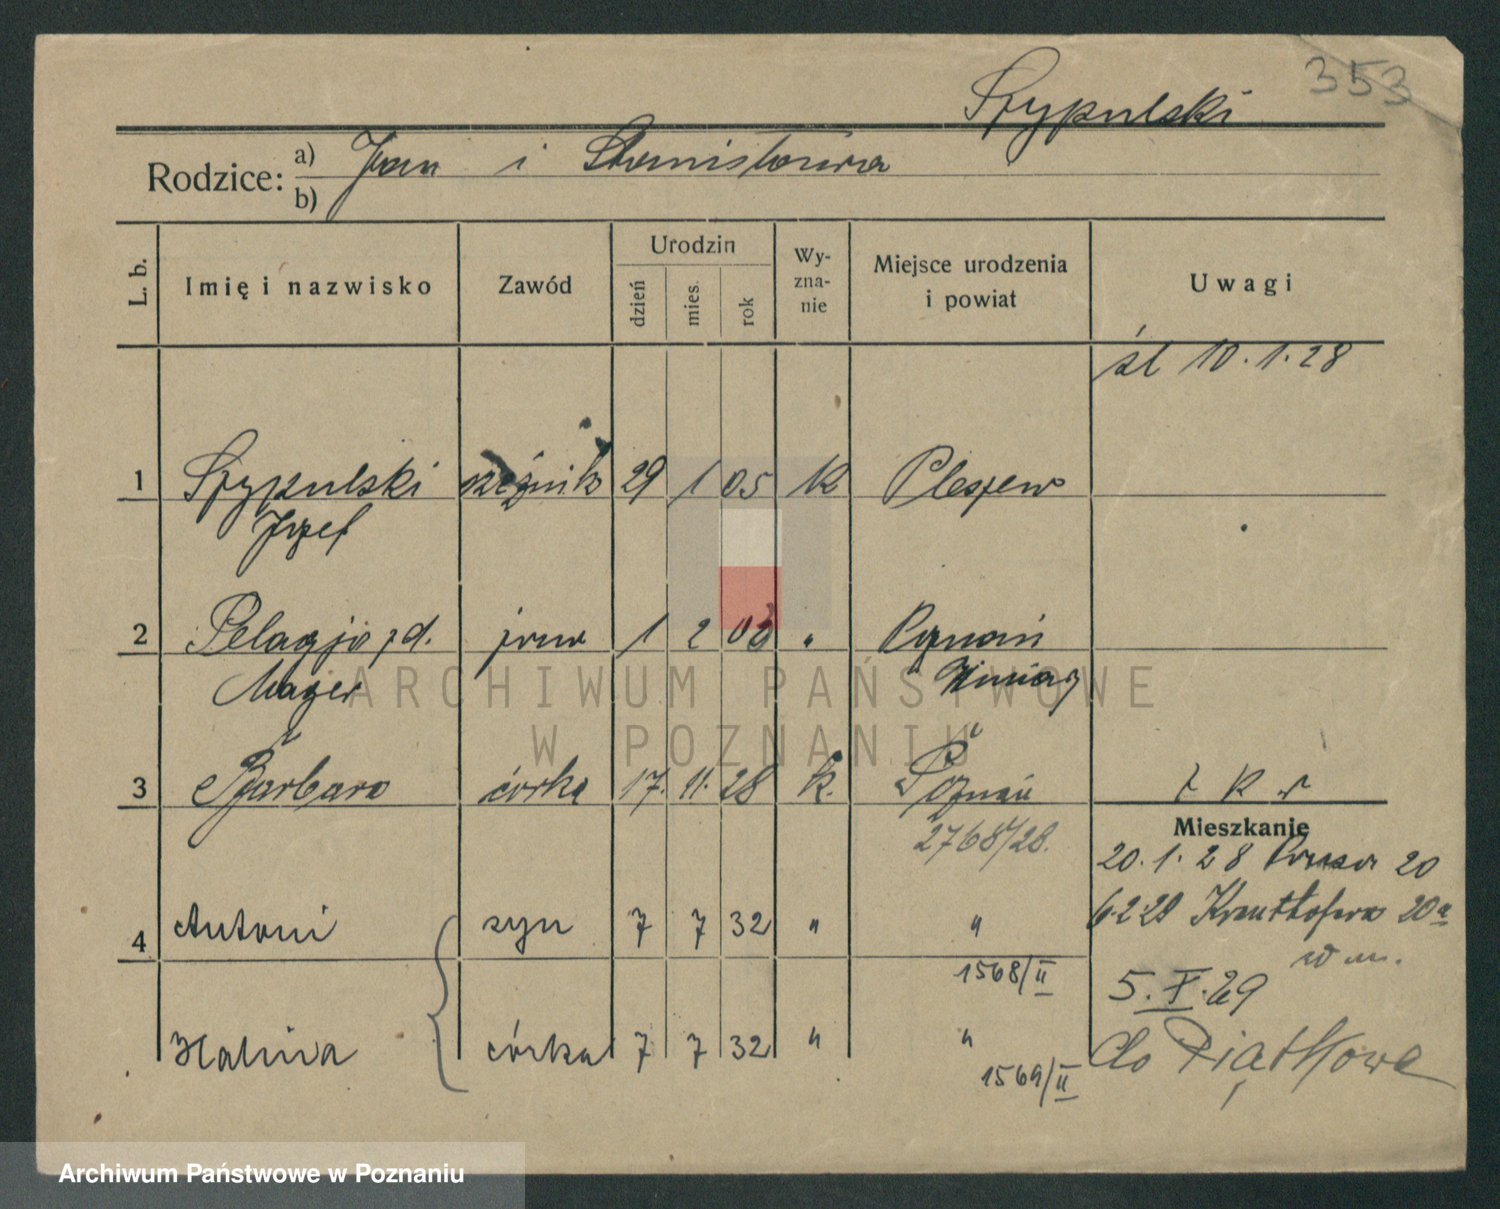 353
Szypulski
Rodzice: a) Jan i Stanisława
b)
L. b.
Imię i nazwisko
Zawód
Urodzin
dzień
mies.
rok
Wy-
zna-
nie
Miejsce urodzenia
i powiat
Uwagi
śl 10.1.28
1 Szypulski rzeźnik 29 1 05 k Pleszew
Józef
2 Pelagja z d. żona 1 2 " Poznań
Mager Winiary
3 Barbara córka 17. 11. 28 k. Poznań
2768/28.
Mieszkanie
20.1.28 Prusa 20
4 Antoni syn 7 7 32 " "
6.2.28 Krauthofera 20a
w m.
1568/II
5.X.29
Halina córka 7 7 32 " "
do Piątkowa
1569/II
ARCHIWUM PAŃSTWOWE
W POZNANIU
Archiwum Państwowe w Poznaniu